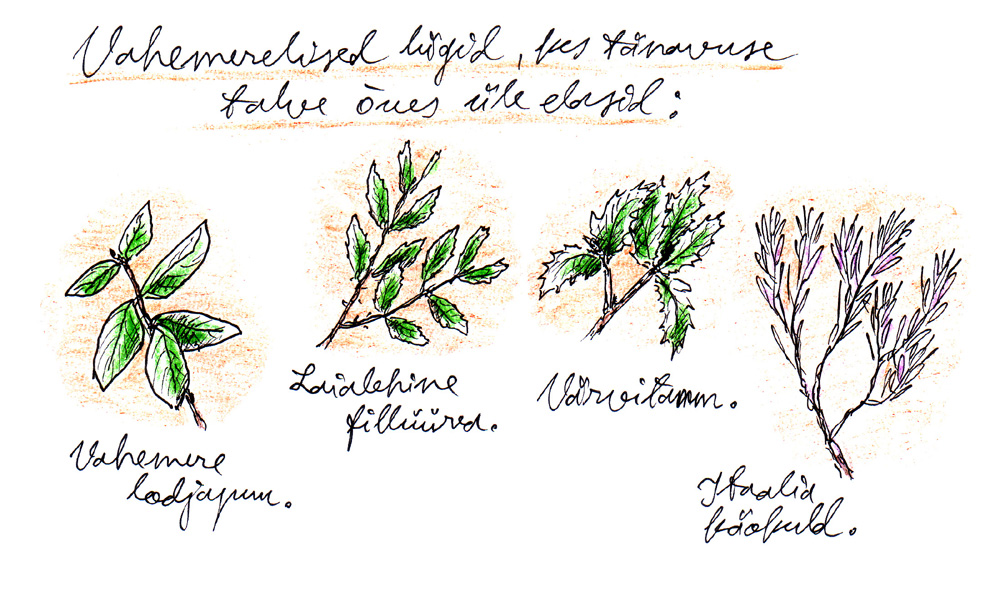 Vahemerelised liigid, kes tänavuse
talve õues üle elasid:
Vahemere
lodjapuu.
Laialehine
fillüürea.
Värvitamm.
Itaalia
käokuld.